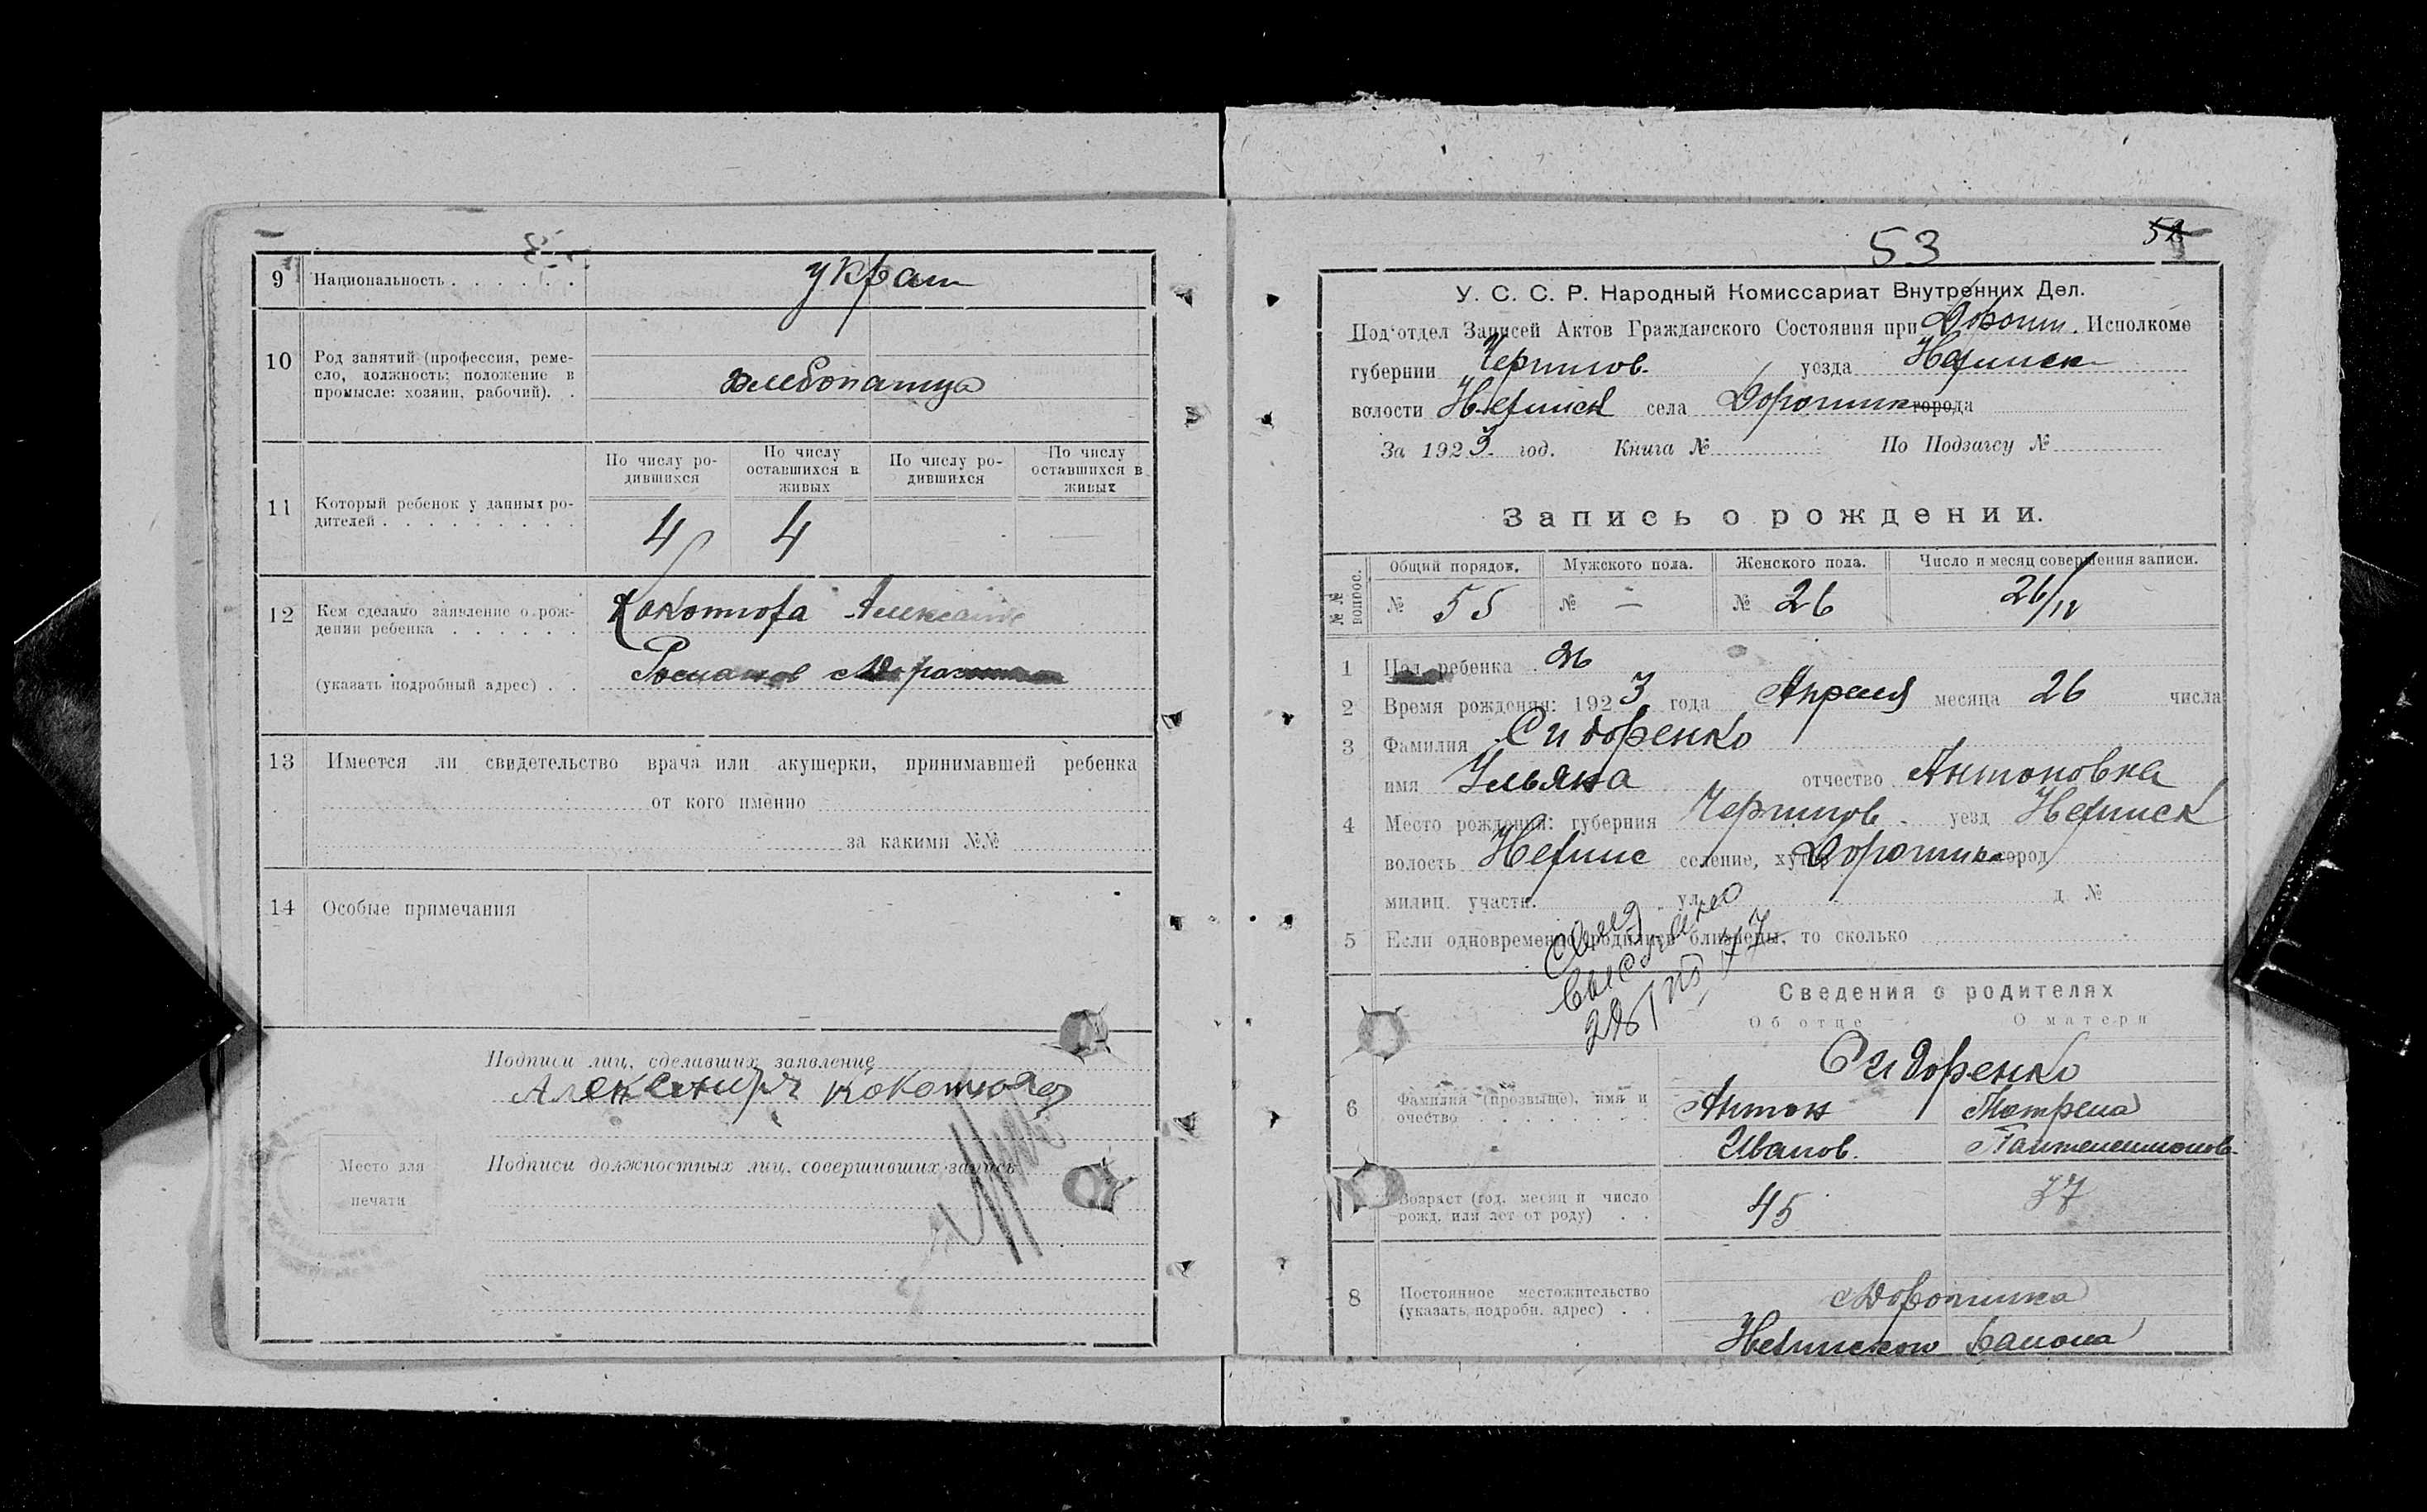 9 Национальность . . . . . . украин
10 Род занятий (профессия, реме-
сло, должность; положение в
промысле: хозяин, рабочий). .
хлебопашца
По числу ро-
дившихся
По числу
оставшихся в
живых
По числу ро-
дившихся
По числу
оставшихся в
живых
11 Который ребенок у данных ро-
дителей . . . . . . . . .
4 4
12 Кем сделано заявление о рож-
дении ребенка . . . . . .
Кокотюха Александр
(указать подробный адрес) . .
Романов
13 Имеется ли свидетельство врача или акушерки, принимавшей ребенка
от кого именно
за какими №№
14 Особые примечания
Подписи лиц, сделавших заявление
Александр Кокотюха
Подписи должностных лиц, совершивших запись
Место для
печати
53 52
У. С. С. Р. Народный Комиссариат Внутренних Дел.
Под'отдел Записей Актов Гражданского Состояния при Дорош. Исполкоме
губернии Чернигов. уезда Нежинск
волости Нежинск села Дорошик города
За 1923 год. Книга № По Подзагсу №
Запись о рождении.
№ № вопрос.
Общий порядок. Мужского пола. Женского пола. Число и месяц совершения записи.
№ 55 № — № 26 26/IV
1 Пол ребенка ж
2 Время рождения: 1923 года Апреля месяца 26 числа
3 Фамилия Сидоренко
имя Ульяна отчество Антоновна
4 Место рождения: губерния Чернигов. уезд Нежинск
волость Нежинс селение, хутор Дорошик город
милиц. участк. ул. д. №
5 Если одновременно родились близнецы, то сколько
Свид
выслано
Сведения о родителях
Об отце О матери
Сидоренко
6 Фамилия (прозвище), имя и
очество . . . . . . . .
Антон Мотрена
Иванов. Пантелеимонов.
Возраст (год, месяц и число
рожд. или лет от роду) . .
45 37
8 Постоянное местожительство
(указать подробн. адрес) . .
Дорошика
Нежинского района